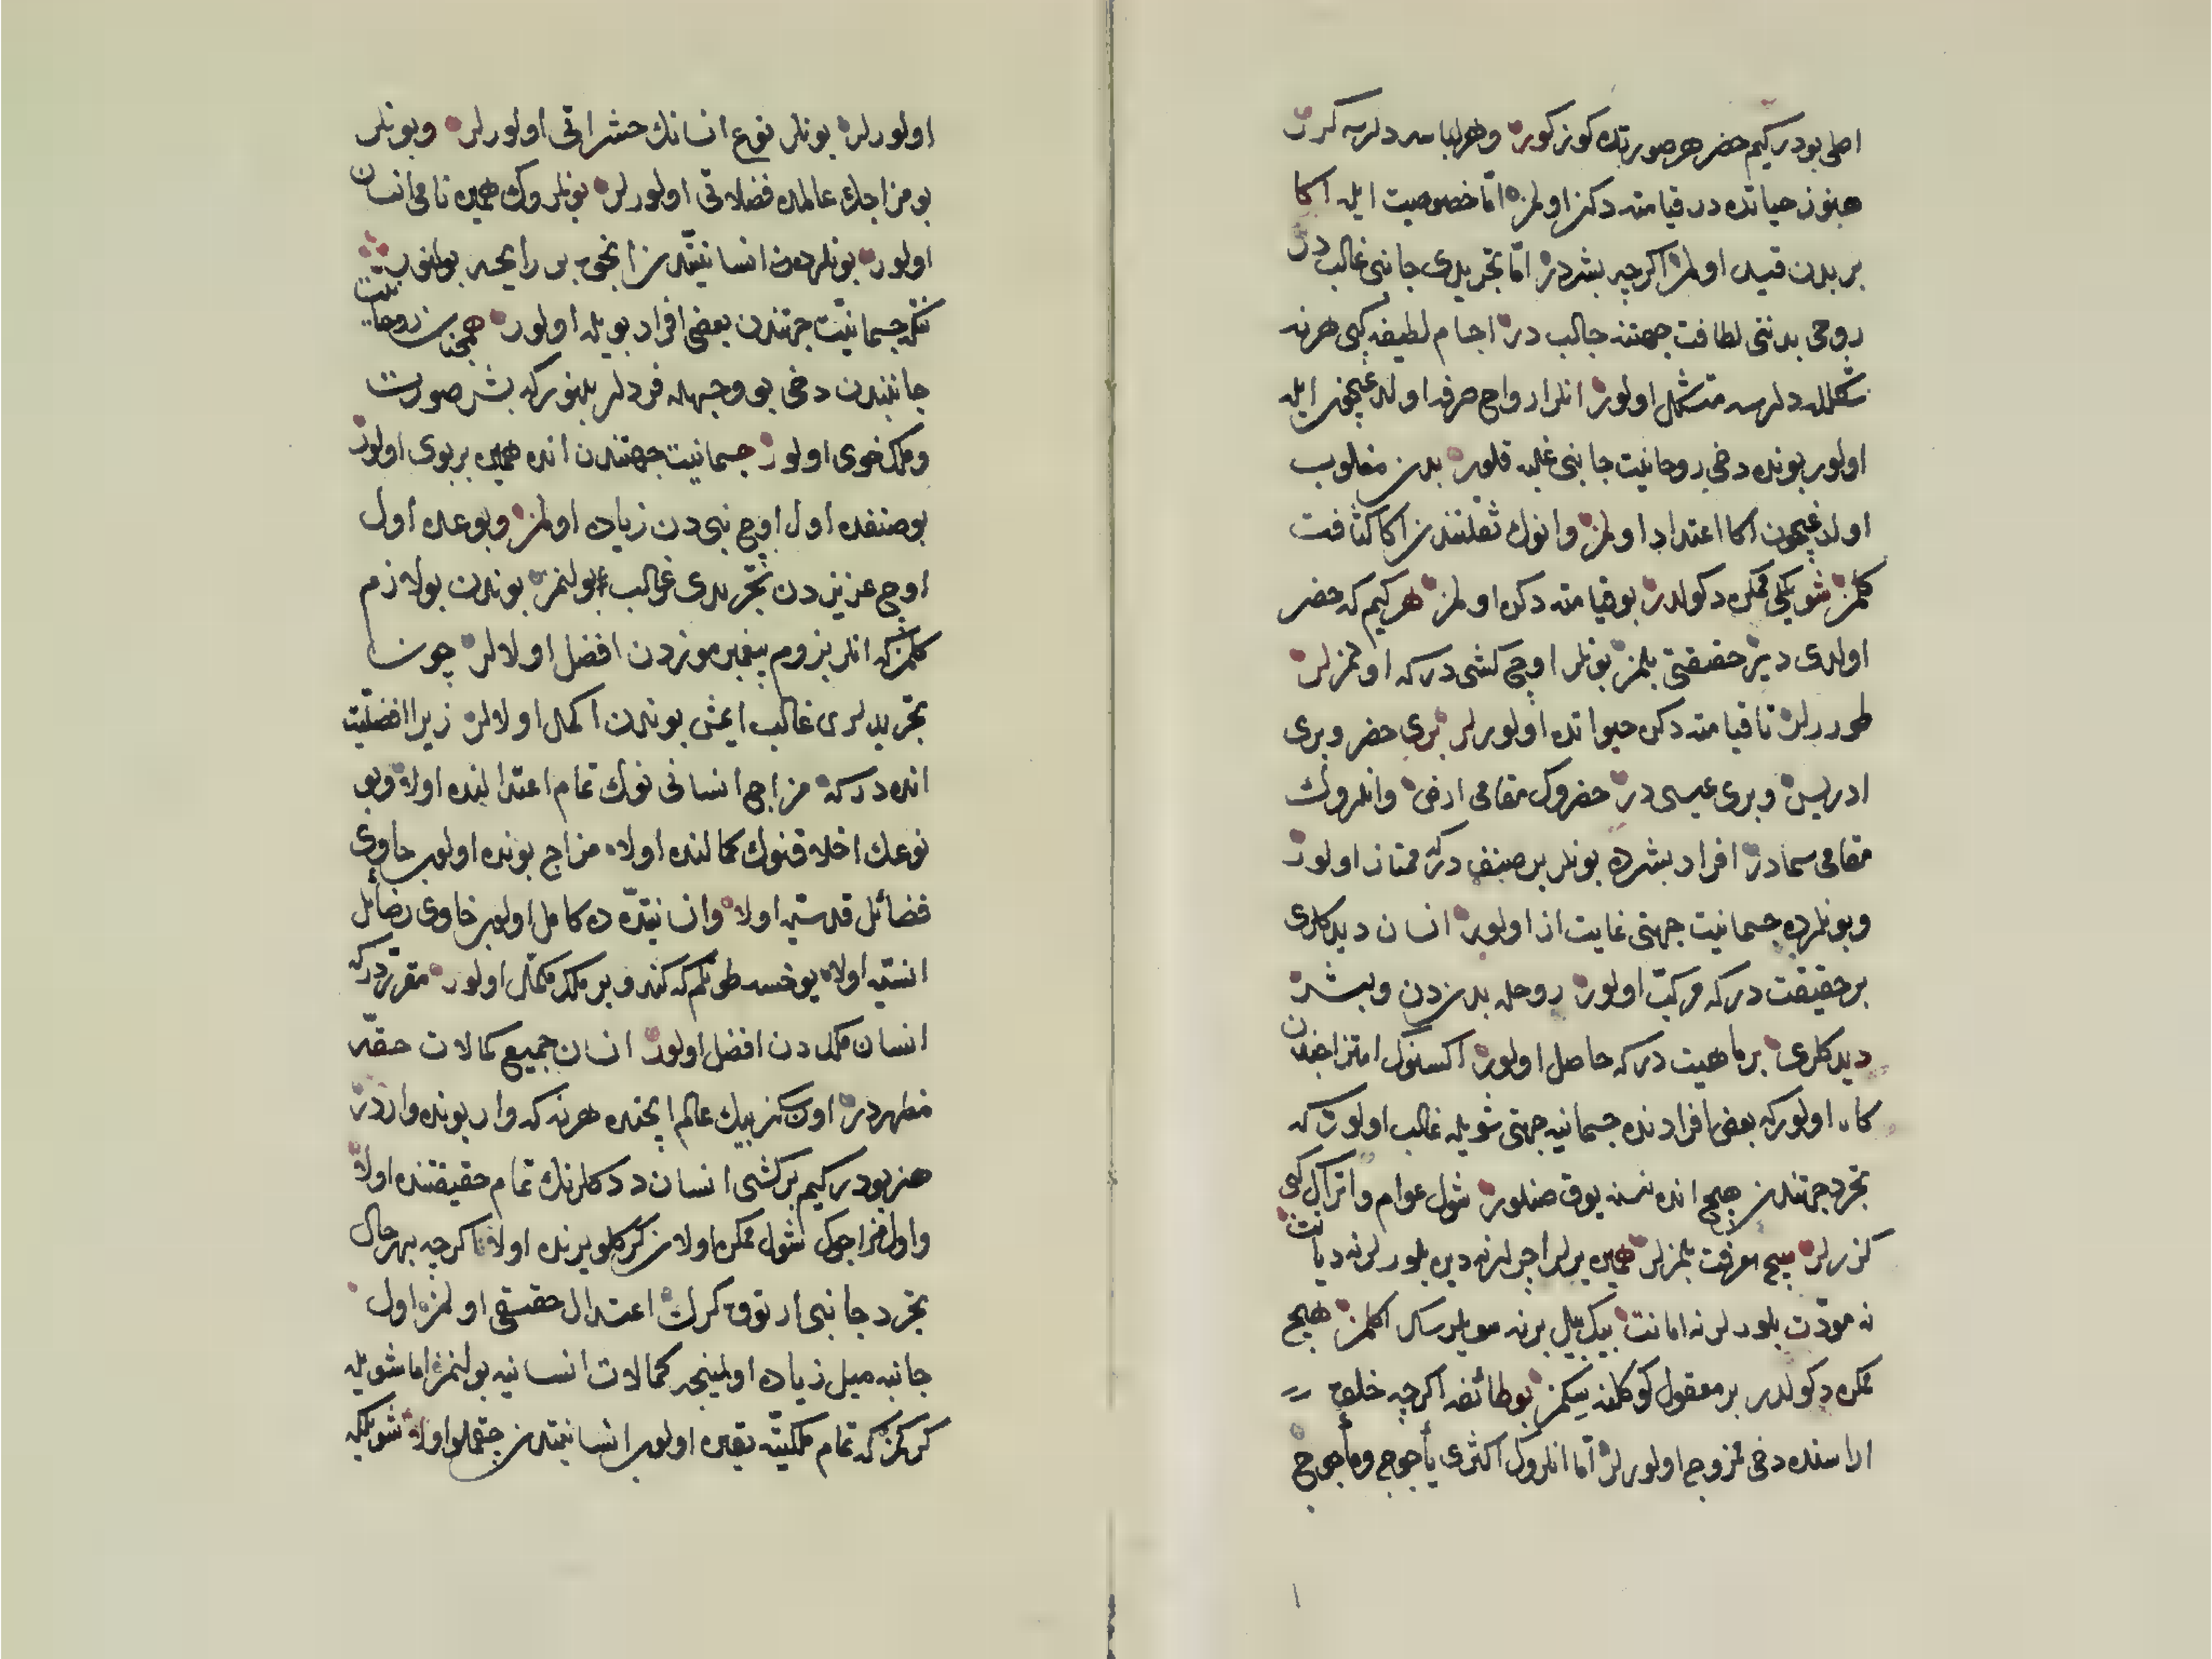 اصلی بودر کیم حضر هر صورتده کوز کور وهر لباسه دلرسه کرر
هنوز حیاتده در قیامته دکز اولمز اتا خصوصیت ایله اکا
بر بدن قید اولمز اکرچه بشردر اتا تجریدی جانبی غالب در
روحی بدننی لطافت جهتنه جالب در اجسام لطیفه کبی هر نه
شکلله دلرسه متشکل اولور انلر ارواح صرفه اولدغیچون ایله
اولور بونده دخی روحانیت جانبی غلبه قلور بدن مغلوب
اولدغیچون اکا اعتداد اولمز وانوك ثقلتندن اکا کثافت
کلمز شویلکی ممکن دکولدر بو قیامته دکن اولمز هر کیم که حضر
اولدی دیر حقیقتی بلمز بونلر اوچ کشی در که اولمزلر
طوررلر تا قیامته دکن حیواتده اولورلر بری حضر وبری
ادریس وبری عیسی در حضروك مقامی ارض وانلروك
مقامی سمادر افراد بشرده بونلر بر صنف در که ممتاز اولور
وبونلرده جسمانیت جهتی غایت از اولور انسان دیدکلری
بر حقیقت در که مرکب اولور روحله بدندن وبشر
دیدکلری بر ماهیت در که حاصل اولور اکسنوك امتزاجندن
کاه اولور که بعض افرادنده جسمانیه جهتی شویله غالب اولور که
تجرد جهتندن هیچ انده نسنه یوق صنلور شول عوام واتراك کبی
کزرلر هیچ معرفت بلمزلر همین یرلر ایچرلر نه دین بلورلر نه دیانت
نه مودت بلورلر نه امانت بیك ییل برنه سویلرسك اکلمز هیچ
ممکن دکولدر بر معقول کوکلنه سکمز بو طائفه اکرچه خلق
اراسنده دخی ممزوج اولورلر اتا انلروك اکثری یأجوج ومأجوج
اولورلر بونلر نوع انسانك حشراتی اولورلر وبونلر
بو مزاجك عالمده فضلاتی اولورلر بونلروك همین نامی انسان
اولور بونلردن انسانیتدن انجق بر رایحه بولنور
نتکه جسمانیت جهتندن بعضی افراد بویله اولور همچنان روحانیت
جانبندن دخی بو وجهله فردلر بلنور که بشر صورت
وملك خوی اولور جسمانیت جهتندن انده همین بر بوی اولور
بو صنفده اول اوچ نبی دن زیاده اولمز وبو عده اول
اوچ عزیزدن تجریدی غالب بولنمز بوندن بو لازم
کلمز که انلر بزوم پیغمبرموزدن افضل اولالر چون
تجریدلری غالب ایمش بوندن اکمل اولالر زیرا افضلیت
انده در که مزاج انسانی نوك تمام اعتدالنده اولا وبو
نوعك اخلاقنوك کمالنده اولا مزاج بونده اولوب حاوی
فضائل قدسیه اولا وانسانیتده کامل اولوب حاوی رضائل
انسیه اولا یوخسه طوتلم که کندو بر ملك مکمل اولور مقرردر که
انسان ملك دن افضل اولور انسان جمیع کمالات حقه
مظهردر اون سکز بیك عالم ایچنده هر نه که وار بونده واردر
هنر بودر کیم بر کشی انسان ددکلرنك تمام حقیقتنده اولا
واول مزاجوك شول ممکن اولان کرکلو یرنده اولا اکرچه بهر حال
تجرد جانبی ارتوق کرك اعتدال حقیقی اولمز اول
جانبه میل زیاده اولمینجه کمالات انسانیه بولنمز اما شویله
کرکمز که تمام ملکیته یقین اولوب انسانیتدن چقملو اولا شویلکه